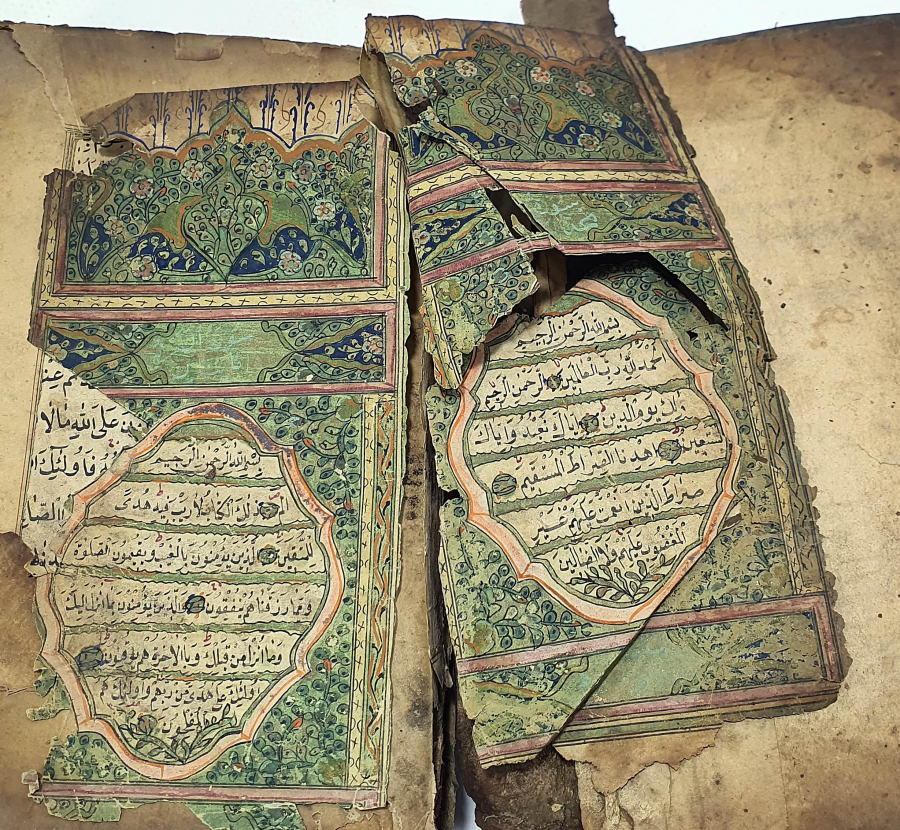 بسم الله الرحمن الرحيم
الحمد لله رب العالمين الرحمن الرحيم
ملك يوم الدين اياك نعبد واياك
نستعين اهدنا الصراط المستقيم
صراط الذين انعمت عليهم غير
المغضوب عليهم ولا الضالين
بسم الله الرحمن الرحيم
ذلك الكتاب لا ريب فيه هدى
للمتقين الذين يؤمنون بالغيب ويقيمون الصلوة
ومما رزقناهم ينفقون والذين يؤمنون بما انزل اليك
وما انزل من قبلك وبالاخرة هم يوقنون
اولئك على هدى من ربهم واولئك هم
المفلحون
على الله مالا